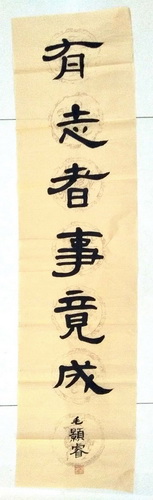 有志者事竟成
毛顥睿